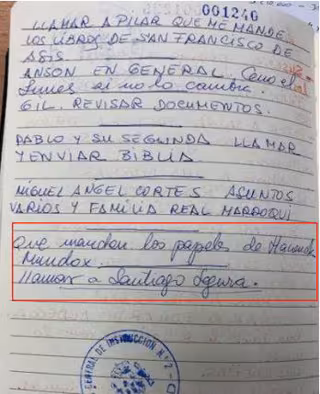 001240
LLAMAR A PILAR QUE ME MANDE
LOS LIBROS DE SAN FRANCISCO DE
ASIS
ANSON EN GENERAL. Ceno el
lunes si no lo cambia.
GIL. REVISAR DOCUMENTOS.
PABLO Y SU SEGUNDA LLAMAR
Y ENVIAR BIBLIA
MIGUEL ANGEL CORTES ASUNTOS
VARIOS Y FAMILIA REAL MARROQUI
Que manden los papeles de Hacienda
Mundox.
llamar a Santiago Segura.
CENTRAL DE INSTRUCCION N.º 2